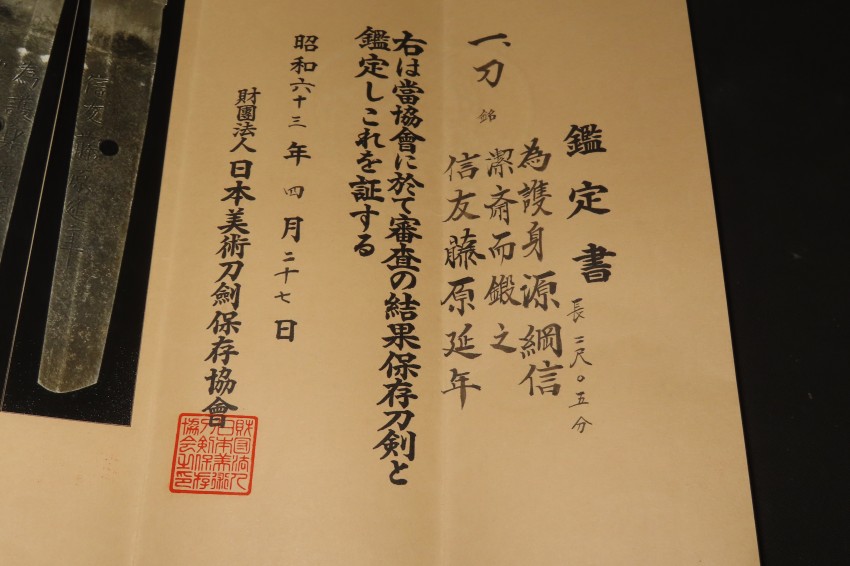 鑑定書
一、刀
銘
長二尺〇五分
為護身源綱信
潔斎而鍛之
信友藤原延年
右は當協會に於て審査の結果保存刀剣と
鑑定しこれを証する
昭和六十三年四月二十七日
財團法人日本美術刀劍保存協會
財団法人
日本美術
刀剣保存
協会之印
信友藤原延年